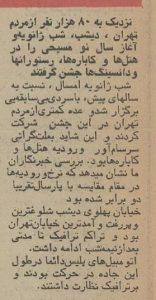 نزدیک به ۸۰ هزار نفر از مردم
تهران ، دیشب، شب ژانویه و
آغاز سال نو مسیحی را در
هتل‌ها و کاباره‌ها، رستورانها
و دانسینگ‌ها جشن گرفتند
شب ژانویه امسال ، نسبت به
سالهای پیش، باسردی بی‌سابقه‌ایی
برگزار شد و عده کمتری از مردم
تهران در این جشن شرکت
کردند و این شاید بعلت گرانی
سرسام‌آور ورودیه هتل‌ها و
کاباره‌ها بود. بررسی خبرنگاران
ما نشان میدهد که نرخ ورودیه‌ها
در مقام مقایسه با پارسال تقریبا
دو برابر شده بود
خیابان پهلوی دیشب شلوغترین
و پررفت و آمدترین خیابان تهران
بود و تراکم ترافیک تا مدتی
بعد از نیمه‌شب ادامه داشت.
اتومبیل‌های پلیس دائما در طول
این جاده در حرکت بودند و
بر ترافیک نظارت داشتند.